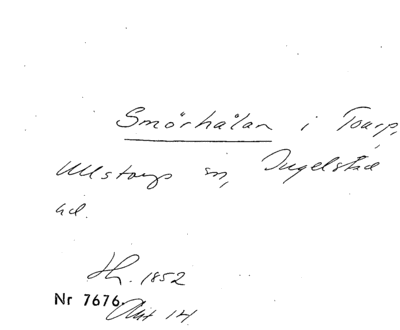 Smörhålan i Tourp,
Ullstorps sn, Ingelstad
hd.
1852
Nr 7676.
Akt 14